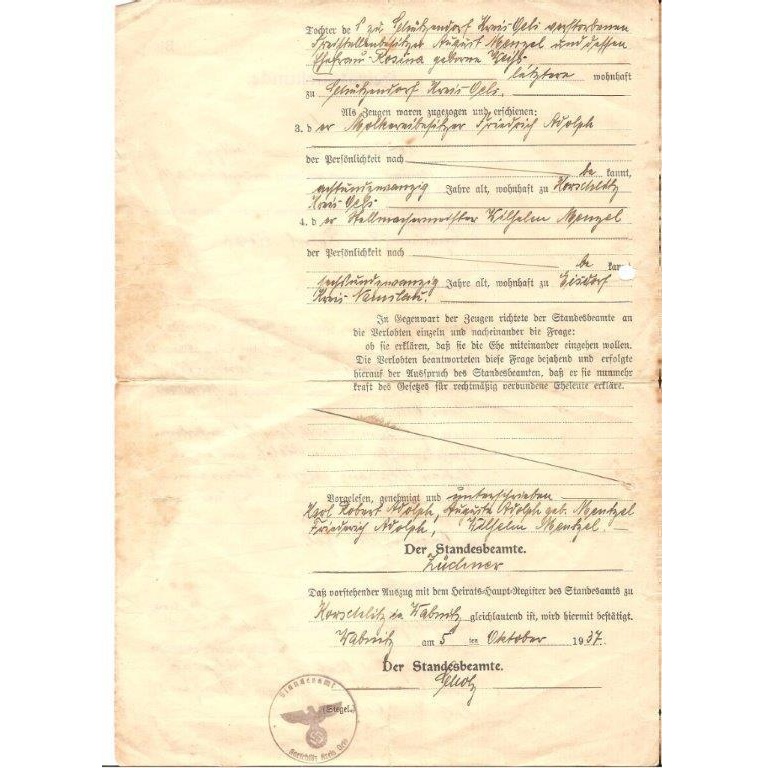 Tochter des zu Schützendorf Kreis Oels verstorbenen
Freistellenbesitzer August Menzel und dessen
Ehefrau Rosina geborne Weiß
letztere wohnhaft
zu Schützendorf Kreis Oels.
Als Zeugen waren zugezogen und erschienen:
3. der Molkereibesitzer Friedrich Adolph
der Persönlichkeit nach
be kannt,
achtundzwanzig Jahre alt, wohnhaft zu Korschlitz
Kreis Oels
4. der Stellmachermeister Wilhelm Menzel
der Persönlichkeit nach
be kannt
sechsundzwanzig Jahre alt, wohnhaft zu Eisdorf
Kreis Namslau.
In Gegenwart der Zeugen richtete der Standesbeamte an
die Verlobten einzeln und nacheinander die Frage:
ob sie erklären, daß sie die Ehe miteinander eingehen wollen.
Die Verlobten beantworteten diese Frage bejahend und erfolgte
hierauf der Ausspruch des Standesbeamten, daß er sie nunmehr
kraft des Gesetzes für rechtmäßig verbundene Eheleute erkläre.
Vorgelesen, genehmigt und unterschrieben
Karl Robert Adolph, Auguste Adolph geb. Mentzel
Friedrich Adolph, Wilhelm Mentzel.
Der Standesbeamte.
Züchner
Daß vorstehender Auszug mit dem Heirats-Haupt-Register des Standesamts zu
Korschlitz in Wabnitz gleichlautend ist, wird hiermit bestätigt.
Wabnitz am 5 ten Oktober 1937.
Der Standesbeamte.
Scholz
(Siegel.)
Standesamt
Korschlitz Kreis Oels